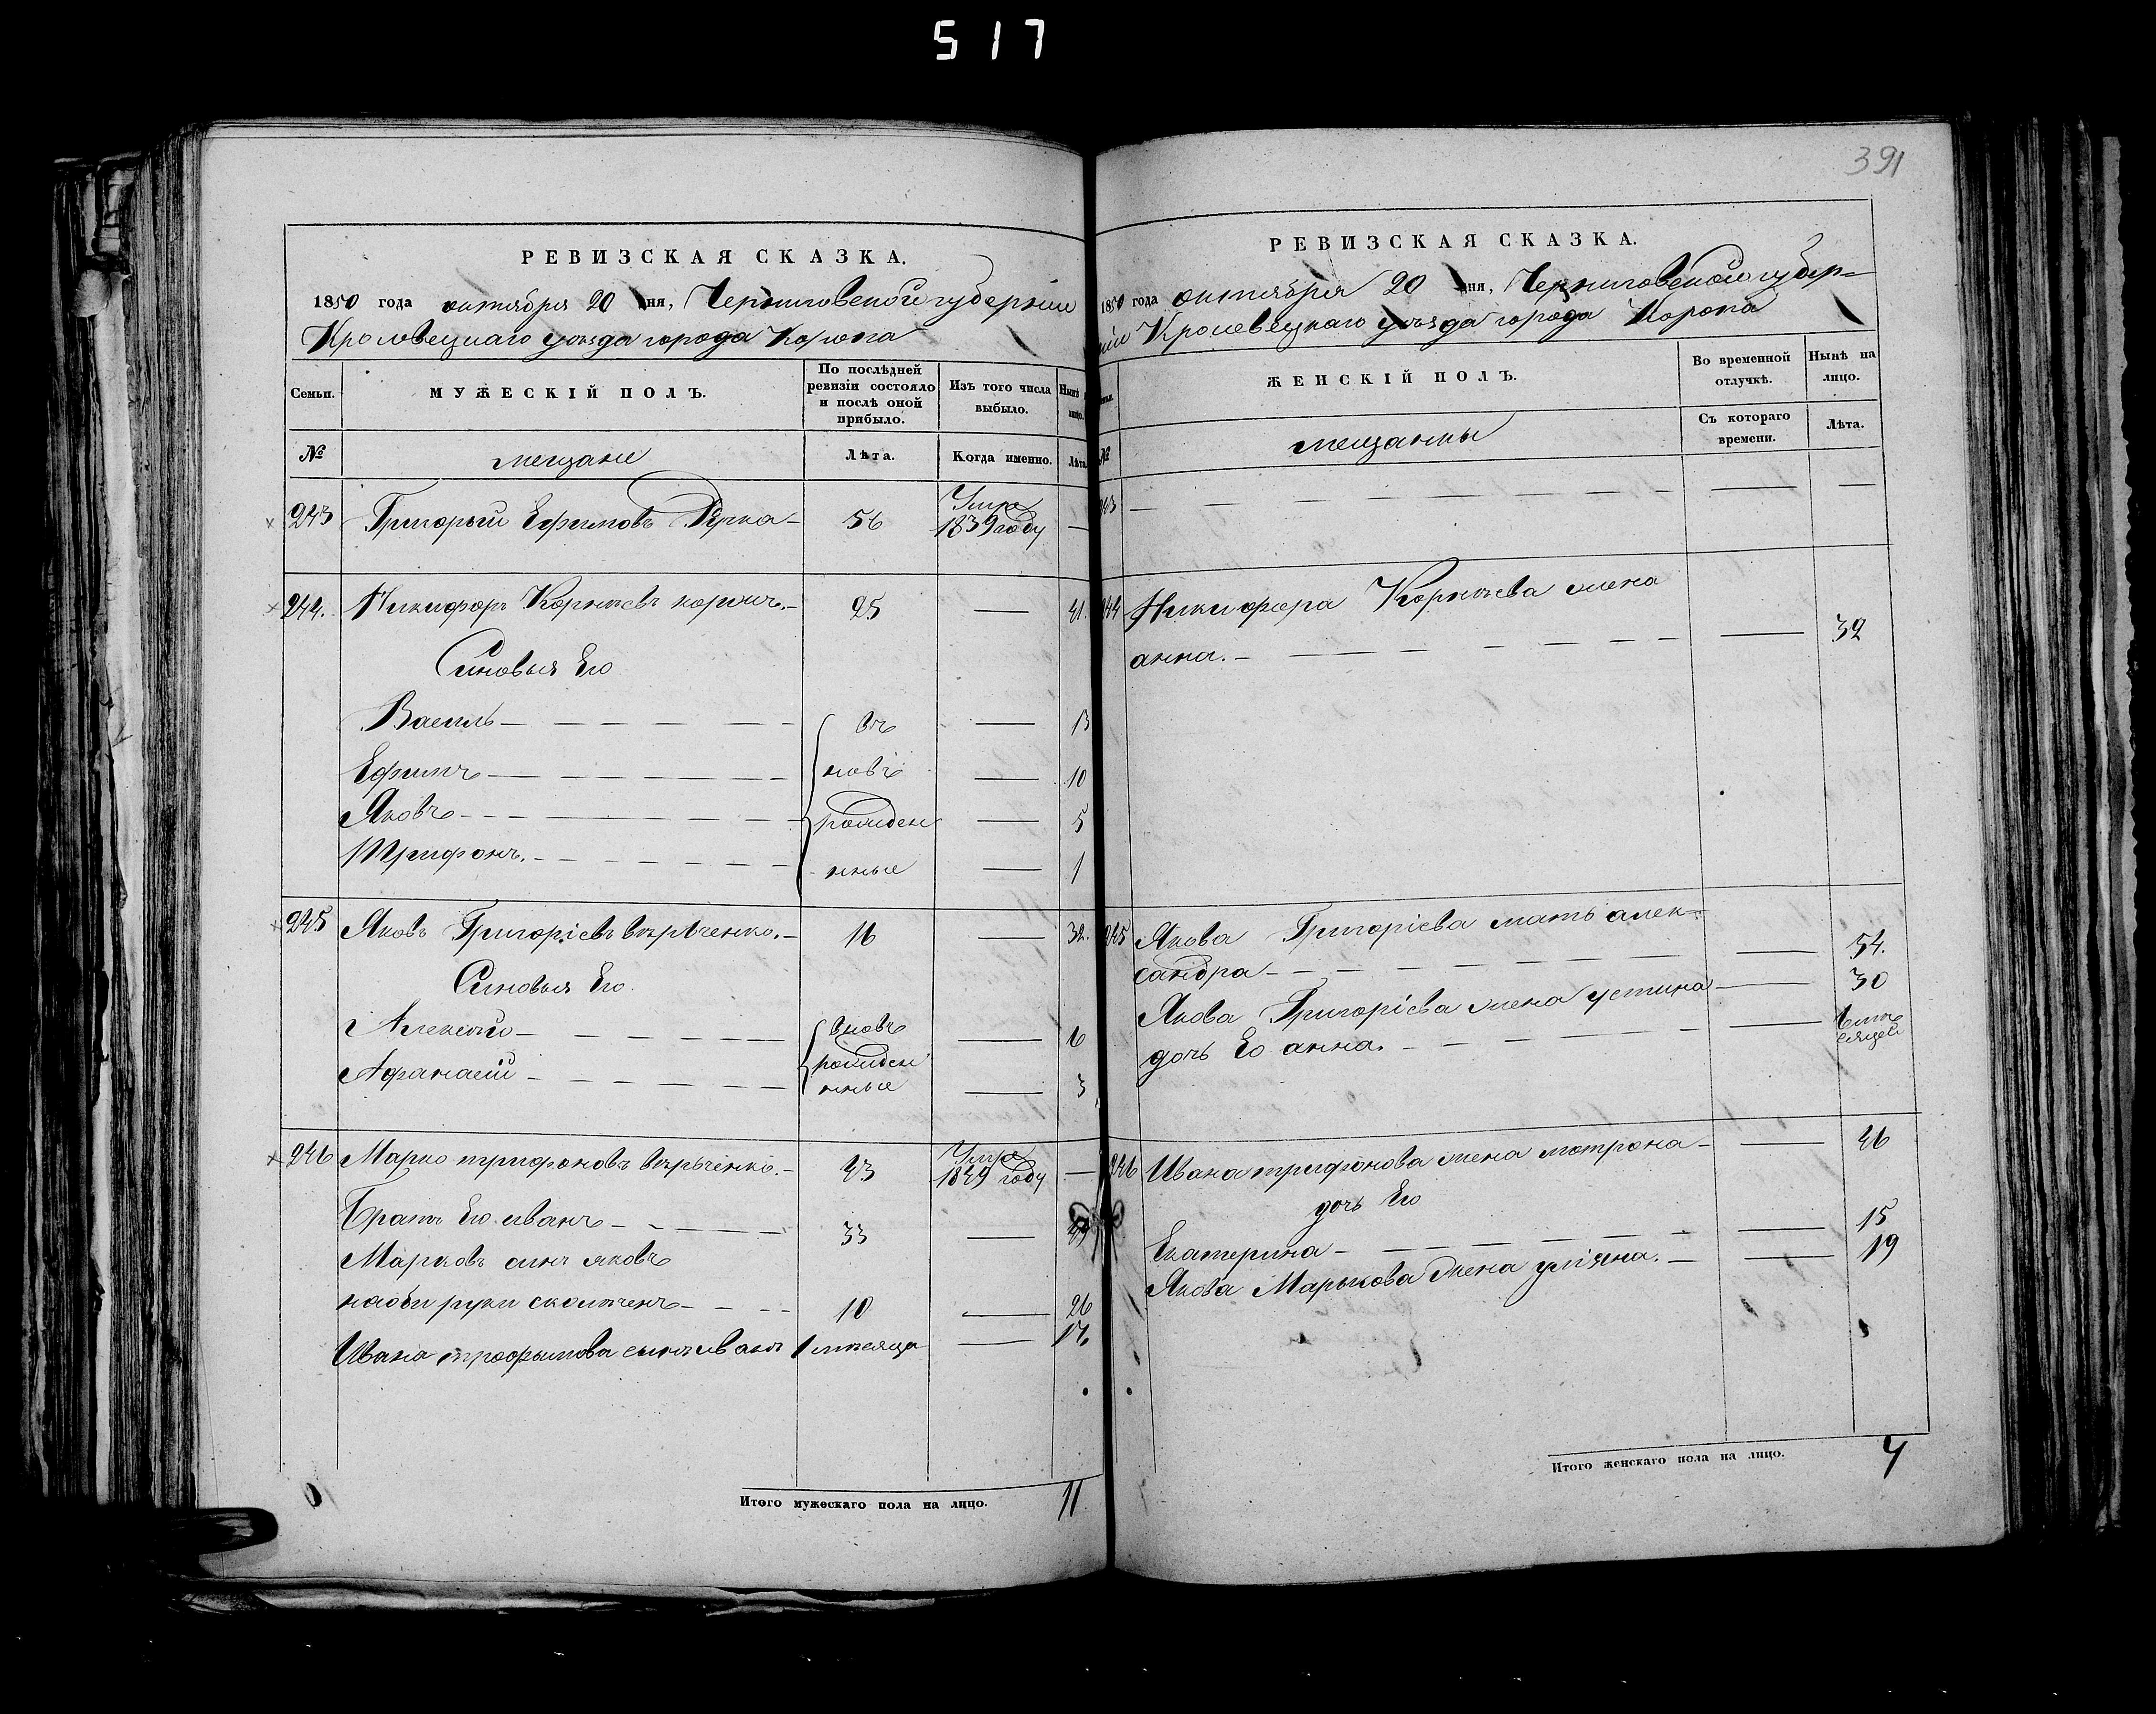 517
391
РЕВИЗСКАЯ СКАЗКА.
1850 года октября 20 дня, Черниговской губернии
Кролевецкаго уезда города Коропа
Семьи. МУЖЕСКІЙ ПОЛЪ. По послѣдней ревизіи состояло и послѣ оной прибыло. Изъ того числа выбыло. Нынѣ лицо.
№ мещане Лѣта. Когда именно. Лѣта
243 Григорый Ефимовъ 56 Умре 1839 году —
244. Никифоръ Корнѣевъ 25 — 41.
Сыновья Его
Василь — въ — 13
Ефимъ — новъ — 10
Яковъ — рожден — 5
Трифонъ. — нные — 1
245 Яковъ Григоріевъ 16 — 32.
Сыновья Его.
Алексей — вновь — 6
Афанасій — рожден нные — 3
246 Марко трифоновъ 43 Умре 1849 году —
Братъ Его иванъ — 33 — 49
Марковъ синъ яковъ
наоби руки скалеченъ — 10 — 26
Ивана трофымова сынъ иванъ 1 месяца — 17
Итого мужескаго пола на лицо. 11
РЕВИЗСКАЯ СКАЗКА.
1850 года октября 20 дня, Черниговской губер-
ніи Кролевецкаго уезда города Коропа
ЖЕНСКІЙ ПОЛЪ. Во временной отлучкѣ. Нынѣ на лицо.
№ мещанки Съ котораго времени. Лѣта.
243 — — —
244 Никифора Корнѣева жена
анна. — — 32
245 Якова Григоріева мать алек-
сандра — — 54.
Якова Григоріева жена устина — 30
дочь Его анна. — — 6 месяцей
246 Ивана трифонова жена мотрона — — 46
дочь Его
Екатерина — — 15
Якова Марькова жена уліяна. — — 19
Итого женскаго пола на лицо. 7